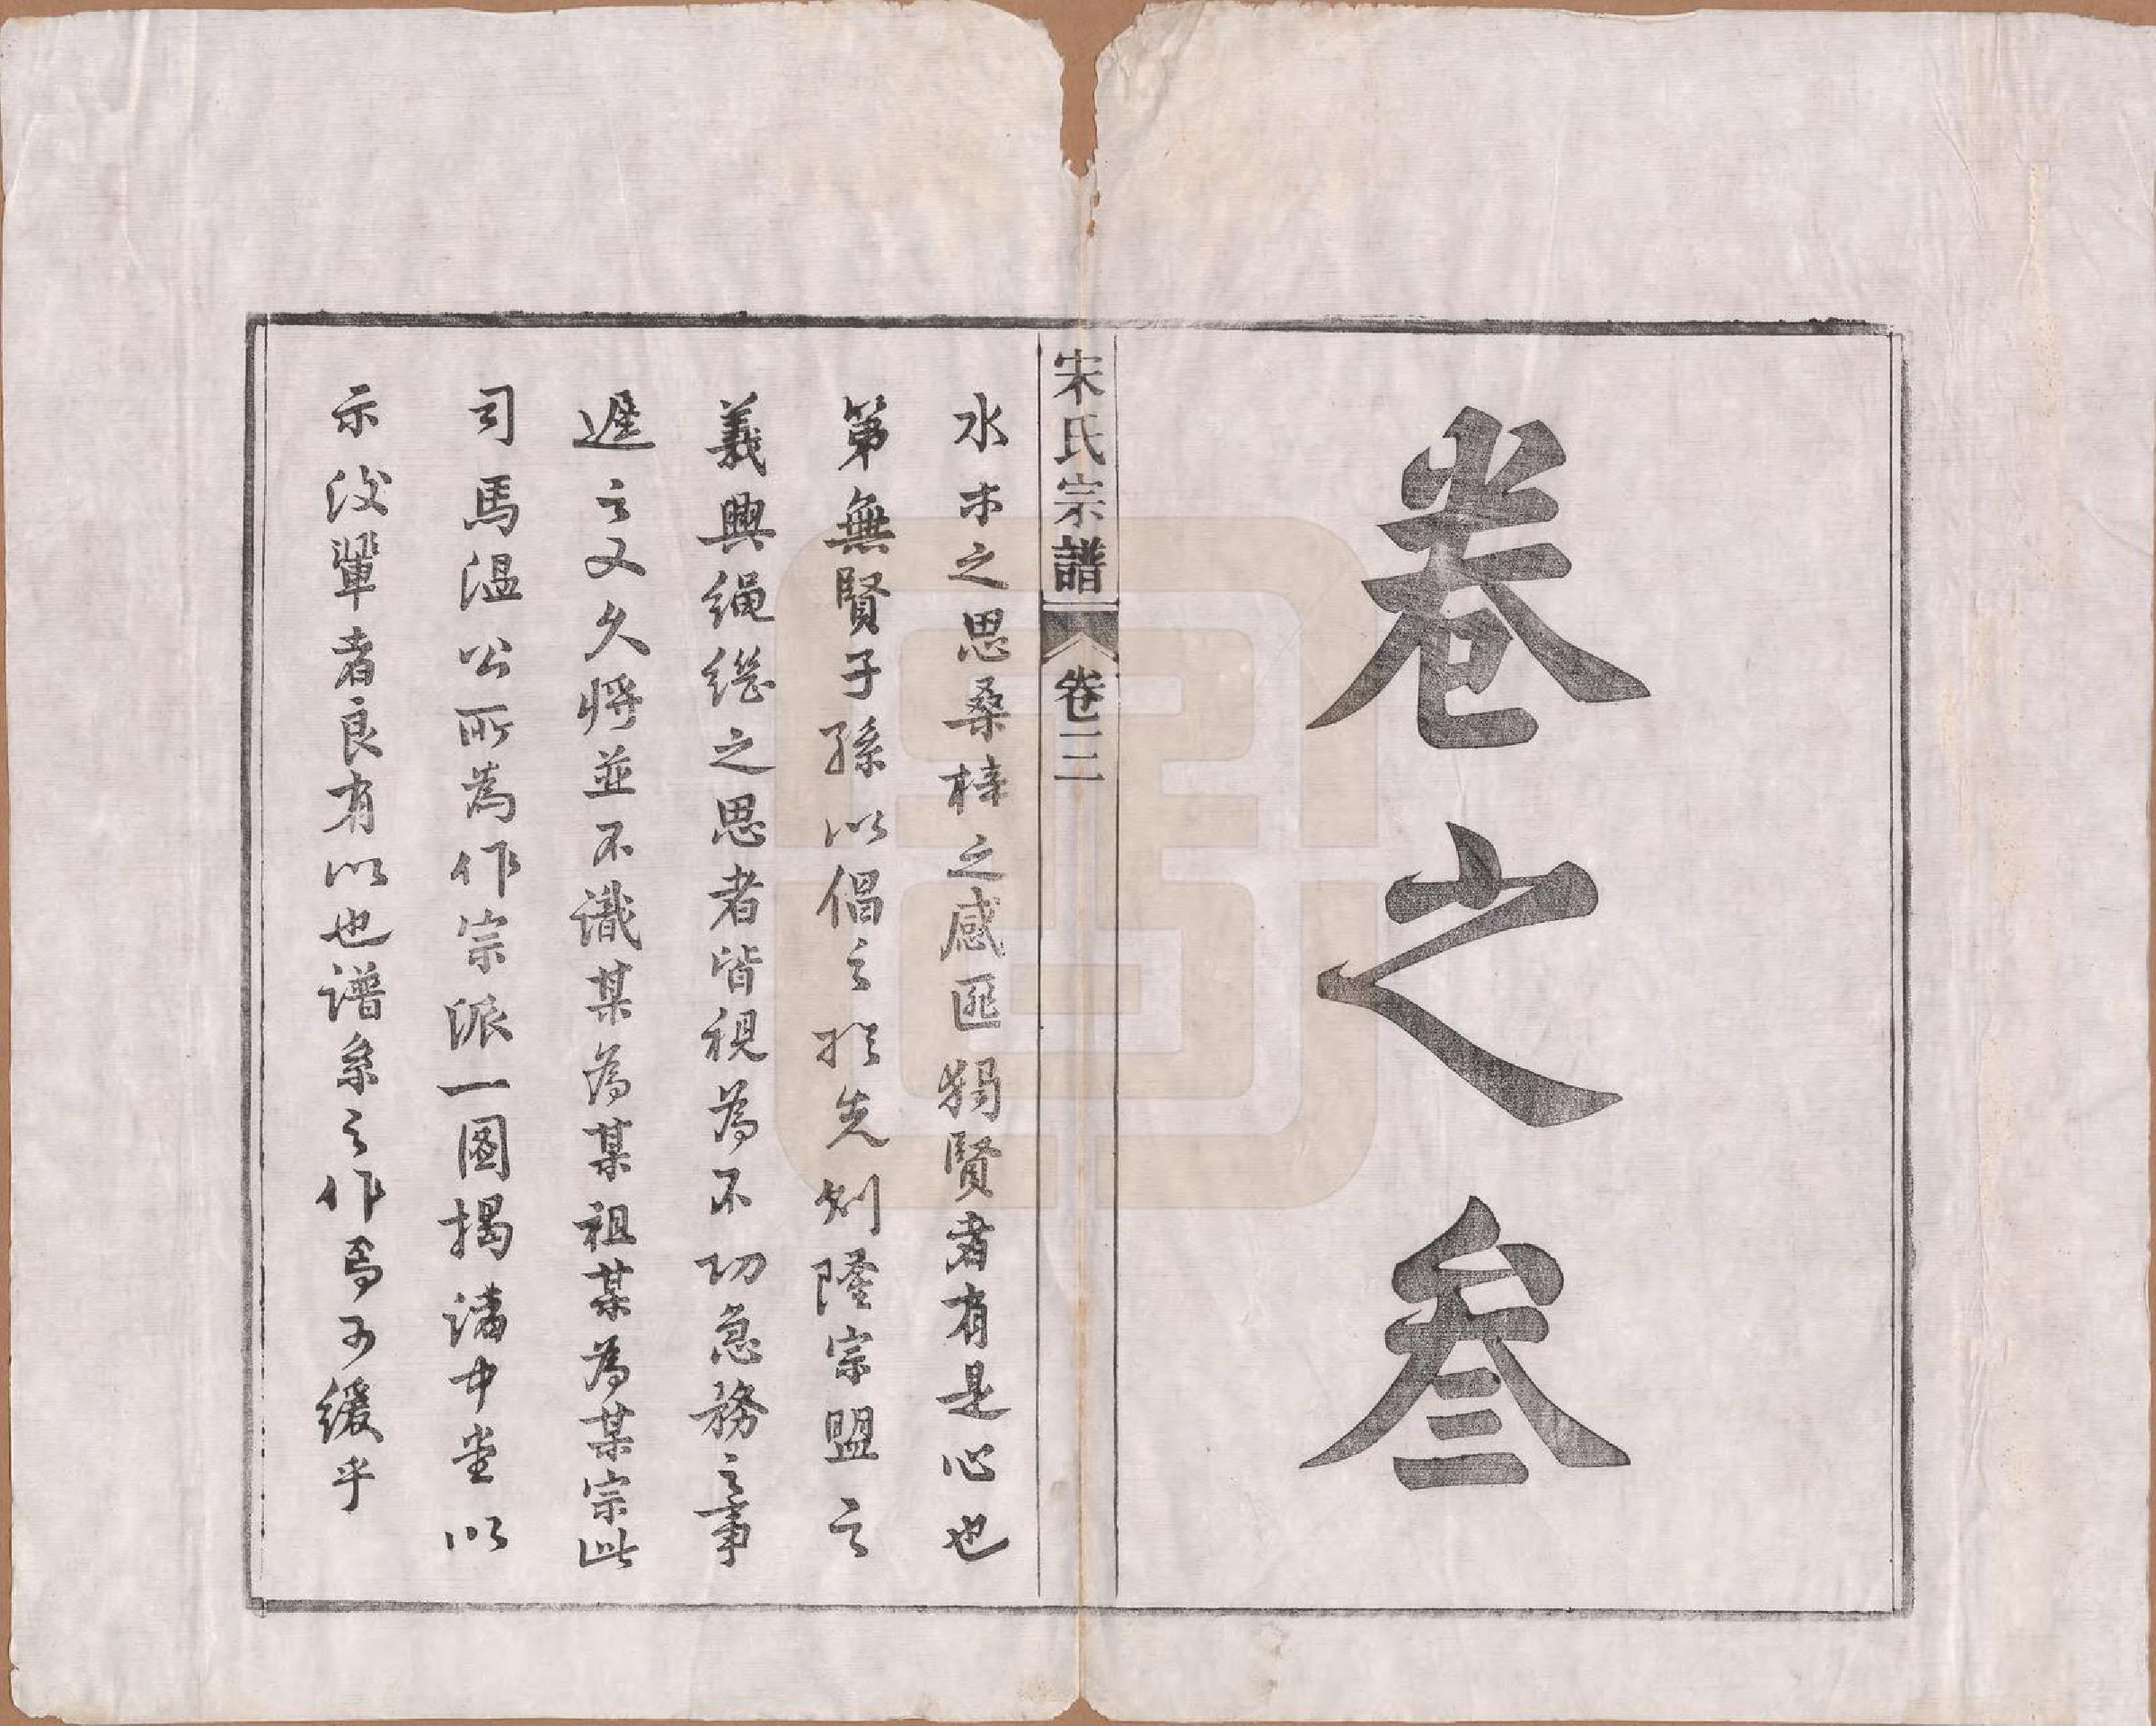 卷之叄
宋氏宗譜 卷三
水木之思桑梓之感匪獨賢者有是心也
第無賢子孫以倡之於先則隆宗盟之
義興繩繼之思者皆視為不切急務之事
遲之又久將並不識某為某祖某為某宗此
司馬溫公所為作宗派一圖揭諸中堂以
示後輩者良有以也譜系之作焉可緩乎